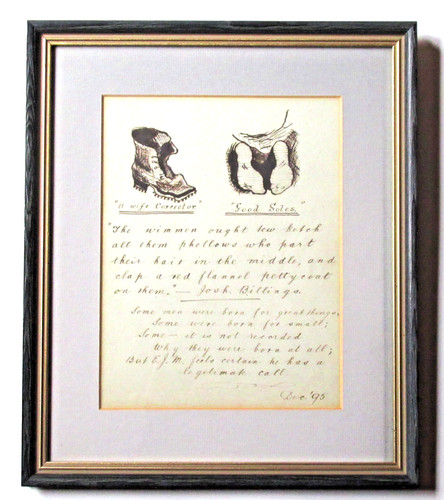 "A Wife Corrector"
"Good Soles."
"The wimmen ought tew ketch
all them phellows who part
their hair in the middle, and
clap a red flannel pettycoat
on them." — Josh Billings.
Some men were born for great things,
Some were born for small;
Some — it is not recorded
Why they were born at all;
But E.J.M. feels certain he has a
legitimate call.
Dec '95